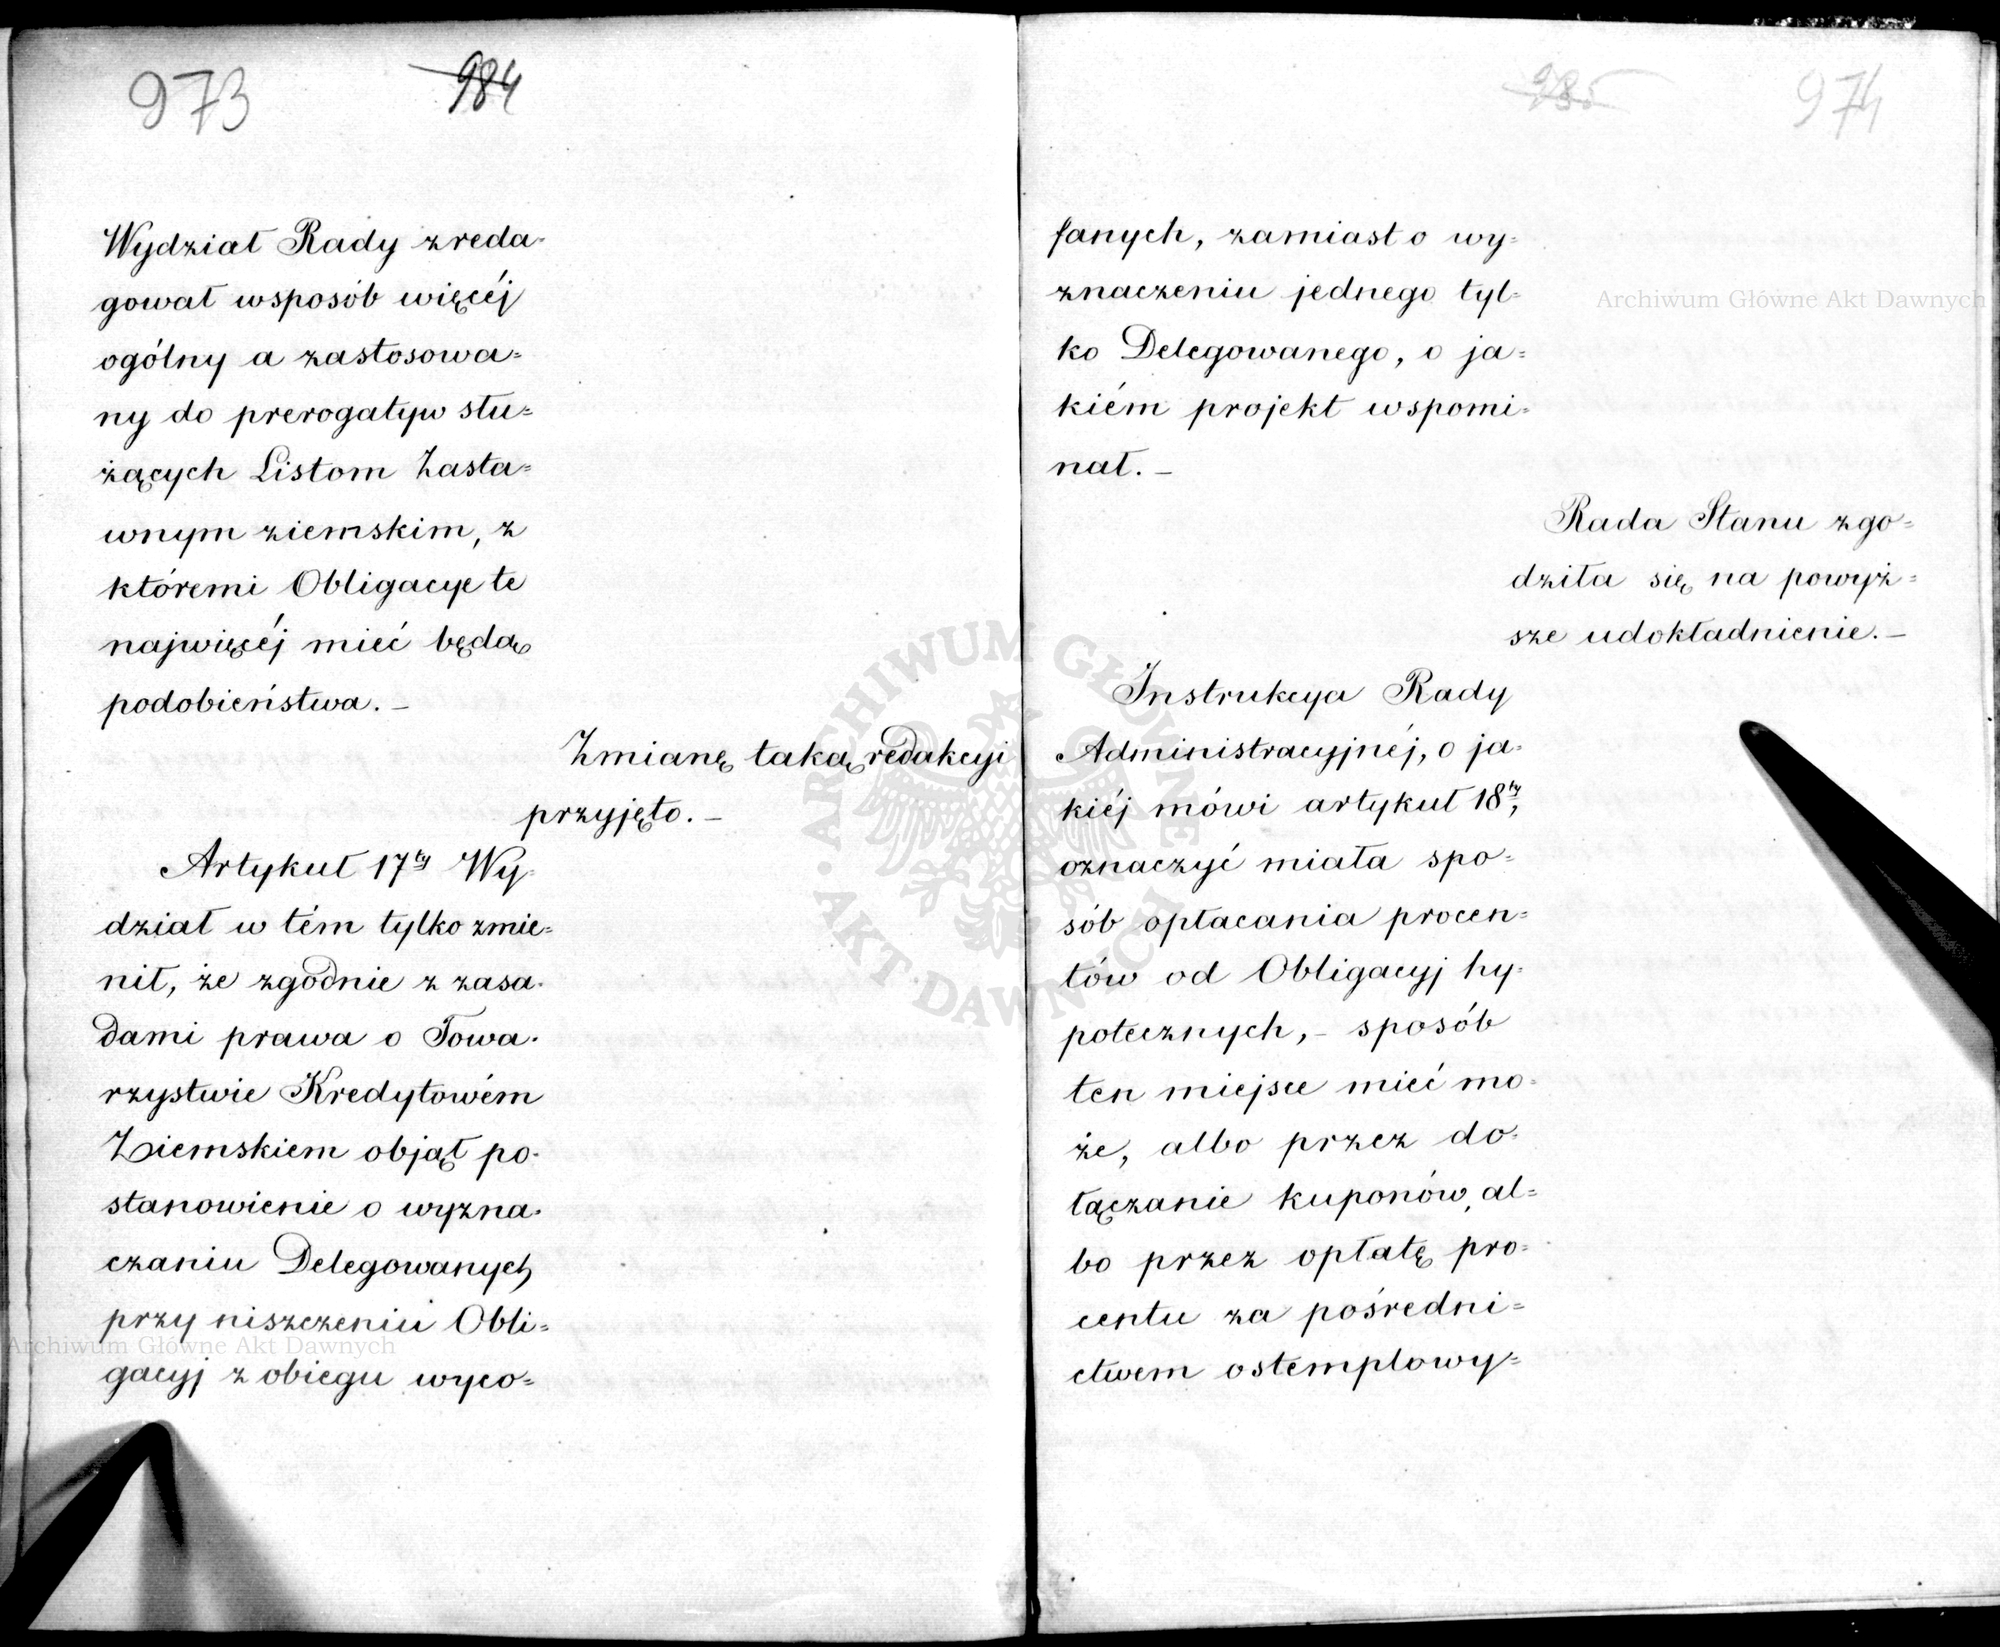 973
984
Wydział Rady zreda-
gował wsposób więcéj
ogólny a zastosowa=
ny do prerogatyw słu=
żących Listom Zasta=
wnym ziemskim, z
któremi Obligacye te
najwięcéj mieć będą
podobieństwa. –
Zmianę taką redakcyi
przyjęto. –
Artykuł 17ty Wy-
dział w tém tylko zmie=
nił, że zgodnie z zasa-
dami prawa o Towa-
rzystwie Kredytowém
Ziemskiem objął po-
stanowienie o wyzna-
czaniu Delegowanych
przy niszczeniu Obli=
gacyj z obiegu wyco=
Archiwum Główne Akt Dawnych
985
974
fanych, zamiast o wy=
znaczeniu jednego tyl=
ko Delegowanego, o ja=
kiém projekt wspomi-
nał. –
Rada Stanu zgo=
dziła się na powyż=
sze udokładnienie. –
Instrukcya Rady
Administracyjnéj, o ja-
kiéj mówi artykuł 18ty,
oznaczyć miała spo=
sób opłacania procen=
tów od Obligacyj hy-
potecznych, – sposób
ten miejsce mieć mo-
że, albo przez do-
łączanie kuponów, al=
bo przez opłatę pro=
centu za pośredni=
ctwem ostemplowy=
Archiwum Główne Akt Dawnych
ARCHIWUM GŁÓWNE
AKT DAWNYCH